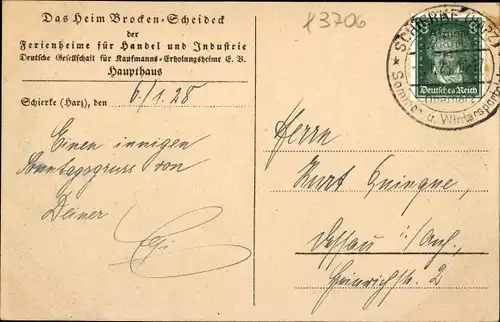 Das Heim Brocken-Scheideck
der
Ferienheime für Handel und Industrie
Deutsche Gesellschaft für Kaufmanns-Erholungsheime E. V.
Haupthaus
Schierke (Harz), den 6/1. 28
Einen innigen
Sonntagsgruss von
Deiner
+3706
SCHIERKE (HARZ)
Sommer u. Wintersport
Deutsches Reich
Herrn
Kurt Quinque,
Dessau i/Anh.,
Heinrichstr. 2